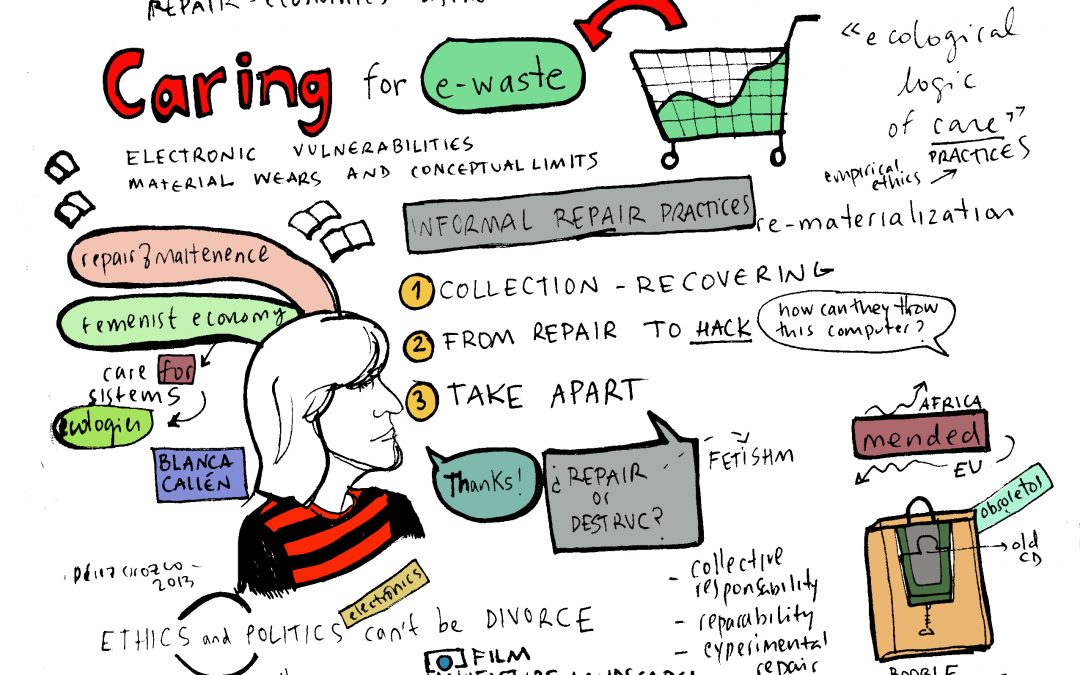 REPAIR
Caring
for
e-waste
ELECTRONIC VULNERABILITIES
MATERIAL WEARS AND CONCEPTUAL LIMITS
"ecological
logic
of care"
PRACTICES
empirical
ethics
INFORMAL REPAIR PRACTICES
re-materialization
repair & maltenence
femenist economy
care for
sistems
ecologies
BLANCA
CALLÉN
1 COLLECTION - RECOVERING
2 FROM REPAIR TO HACK
how can they throw
this computer?
3 TAKE APART
Thanks!
¿REPAIR
or
DESTRUC?
FETISHM
AFRICA
mended
EU
obsoletos
old
CD
2013
electronics
ETHICS and POLITICS can't be DIVORCE
- collective
responsability
- reparability
- experimental
repair
FILM